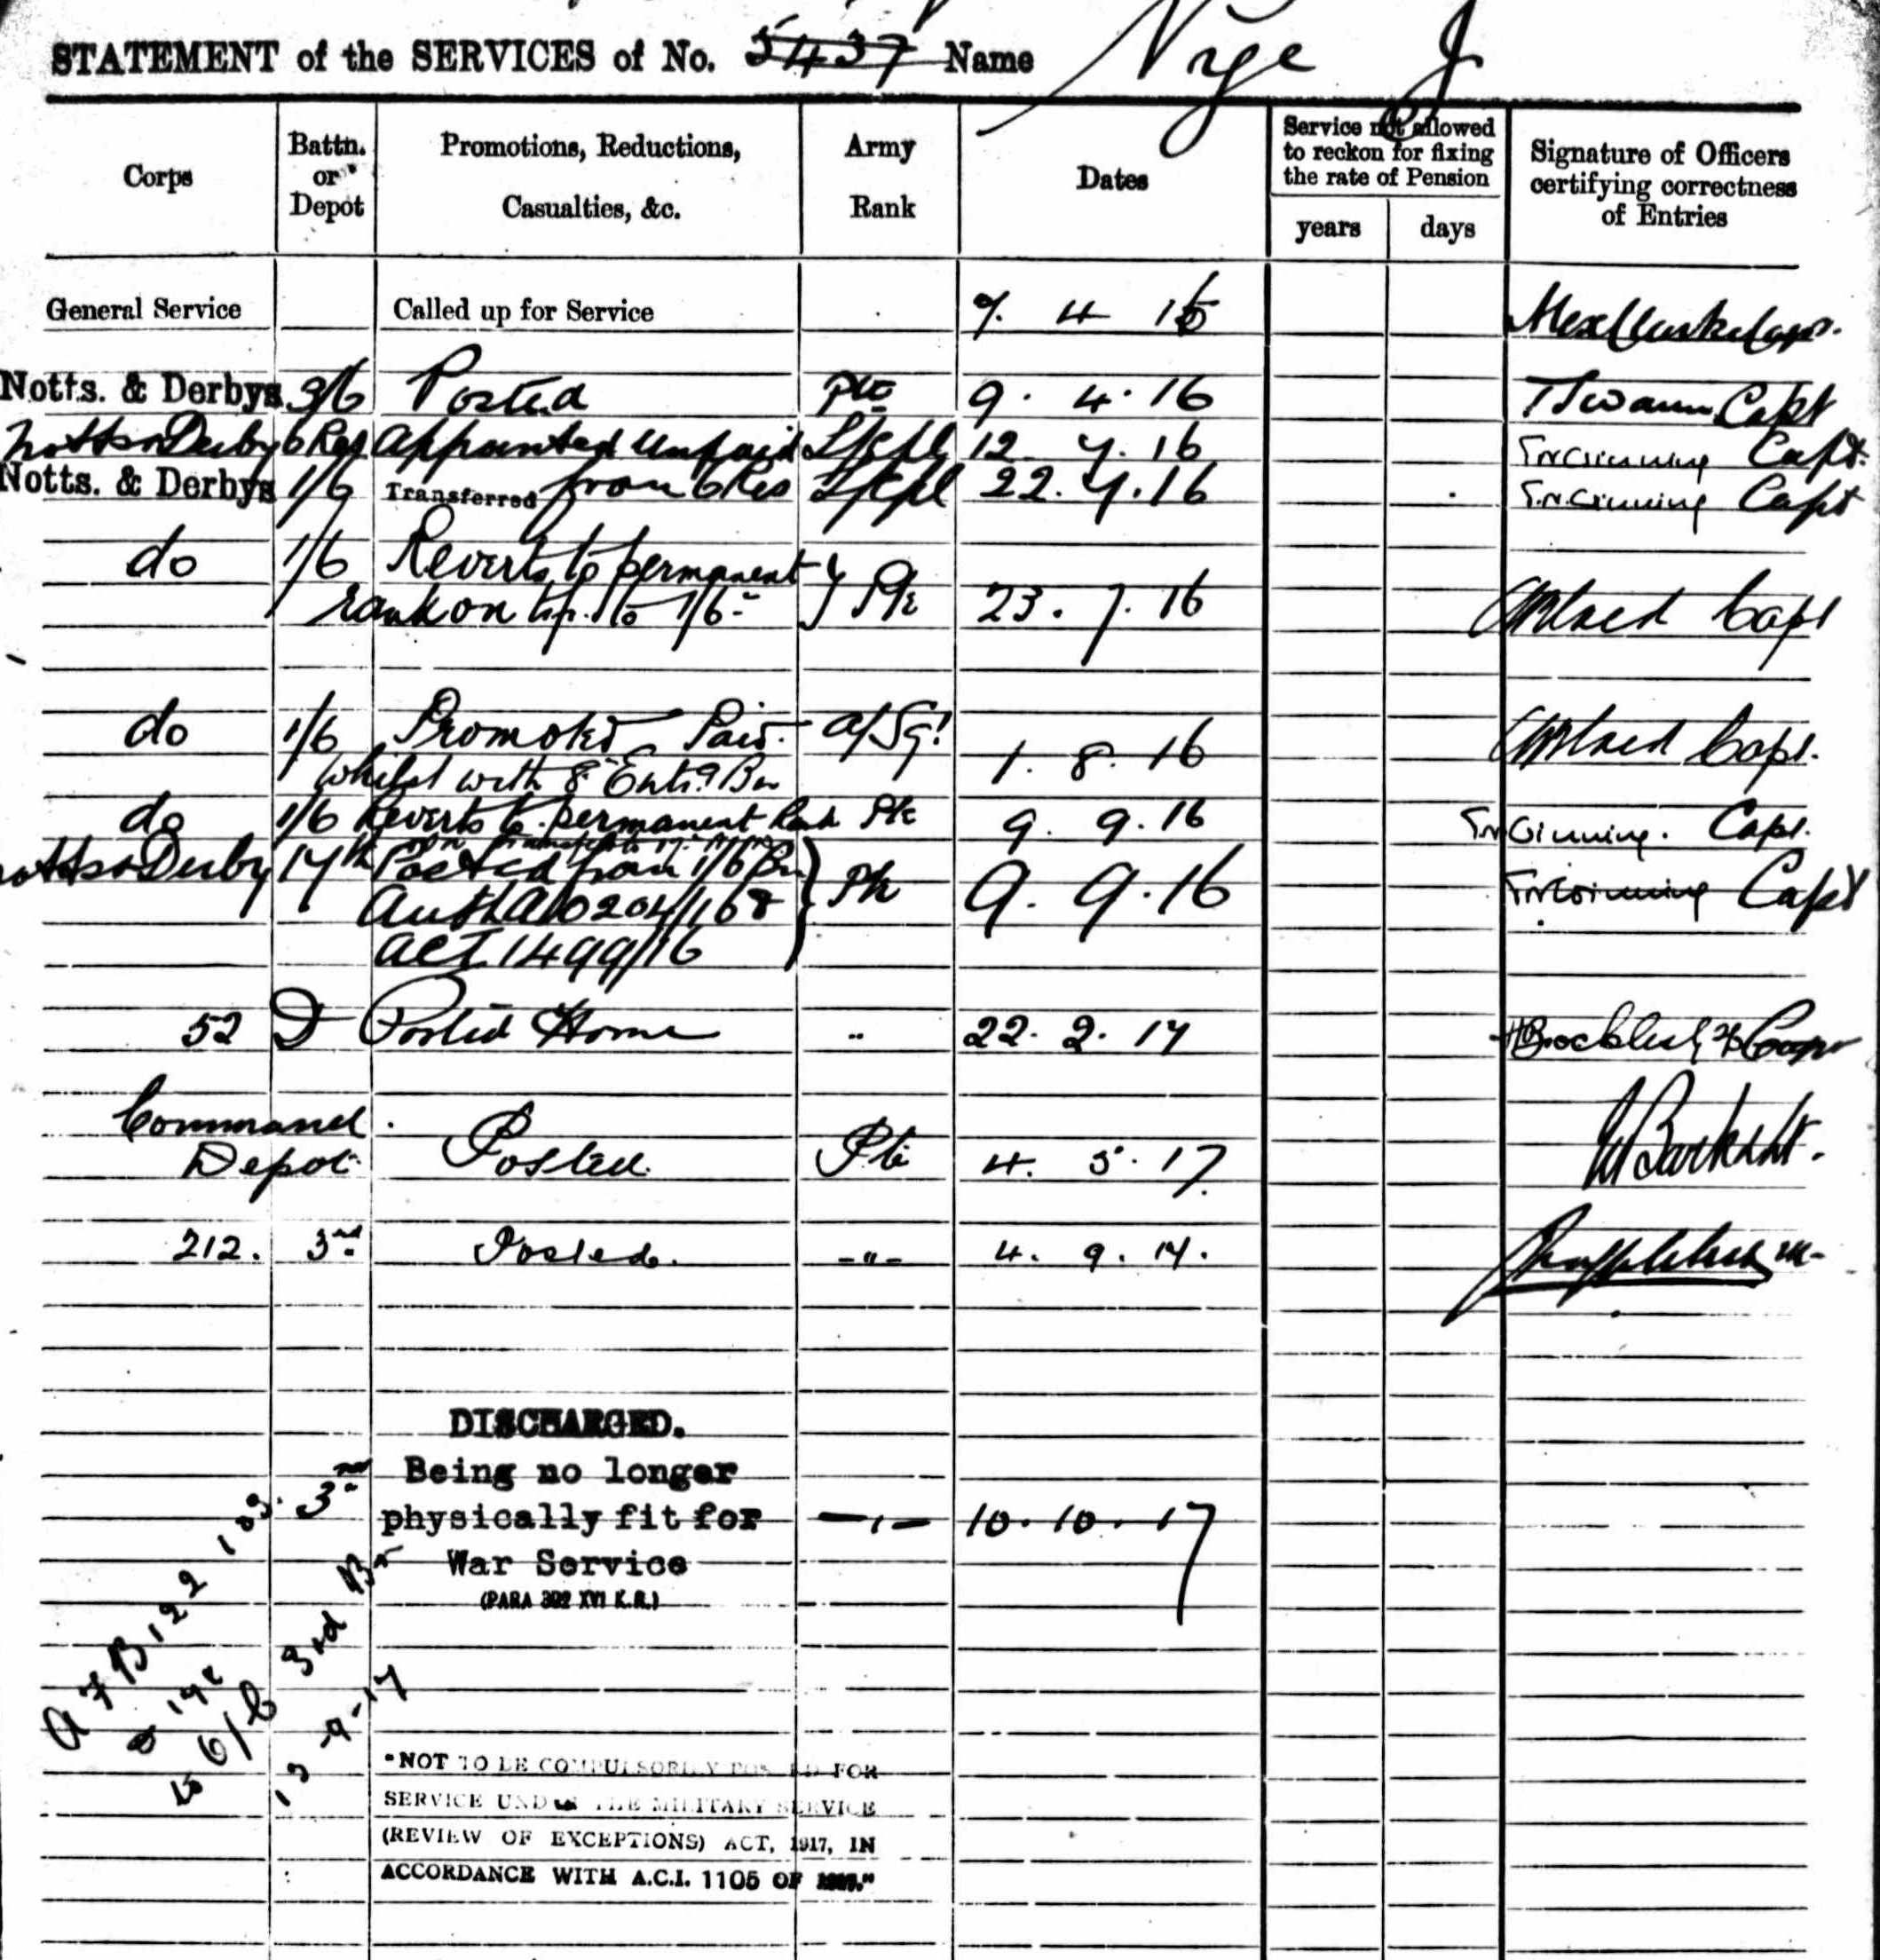 STATEMENT of the SERVICES of No. 5437 Name Nye J
Corps
Battn. or Depot
Promotions, Reductions, Casualties, &c.
Army Rank
Dates
Service not allowed to reckon for fixing the rate of Pension
years days
Signature of Officers certifying correctness of Entries
General Service Called up for Service 7. 4 16
Notts. & Derbys. 3/6 Posted Pte 9. 4. 16 Capt
Notts & Derby 6 Res Appointed Unpaid L/Cpl 12. 7. 16 Capt.
Notts. & Derbys 1/6 Transferred from 6 Res L/Cpl 22. 7. 16 Capt
do 1/6 Reverts to permanent
rank on tfr. to 1/6 Pte 23. 7. 16 Capt
do 1/6 Promoted Paid a/Sgt 1. 8. 16 Capt.
Whilst with 8 Entr. Bn
do 1/6 Reverts to permanent Rank Pte 9. 9. 16 Capt.
Notts & Derby 17th Posted from 1/6 Bn Pte 9. 9. 16 Capt
Auth AO 204/1168
ACI. 1499/16
52 D Posted Home " 22. 2. 17
Command
Depot Posted Pte 4. 5. 17
212. 3rd Posted. -"- 4. 9. 17.
DISCHARGED.
Being no longer
3rd physically fit for -"- 10. 10. 17
War Service
(PARA 392 XVI K.R.)
A F B 122 103.
6/B 3rd Bn
13-9-17
"NOT TO BE COMPULSORILY POSTED FOR
SERVICE UNDER THE MILITARY SERVICE
(REVIEW OF EXCEPTIONS) ACT, 1917, IN
ACCORDANCE WITH A.C.I. 1105 OF 1917."